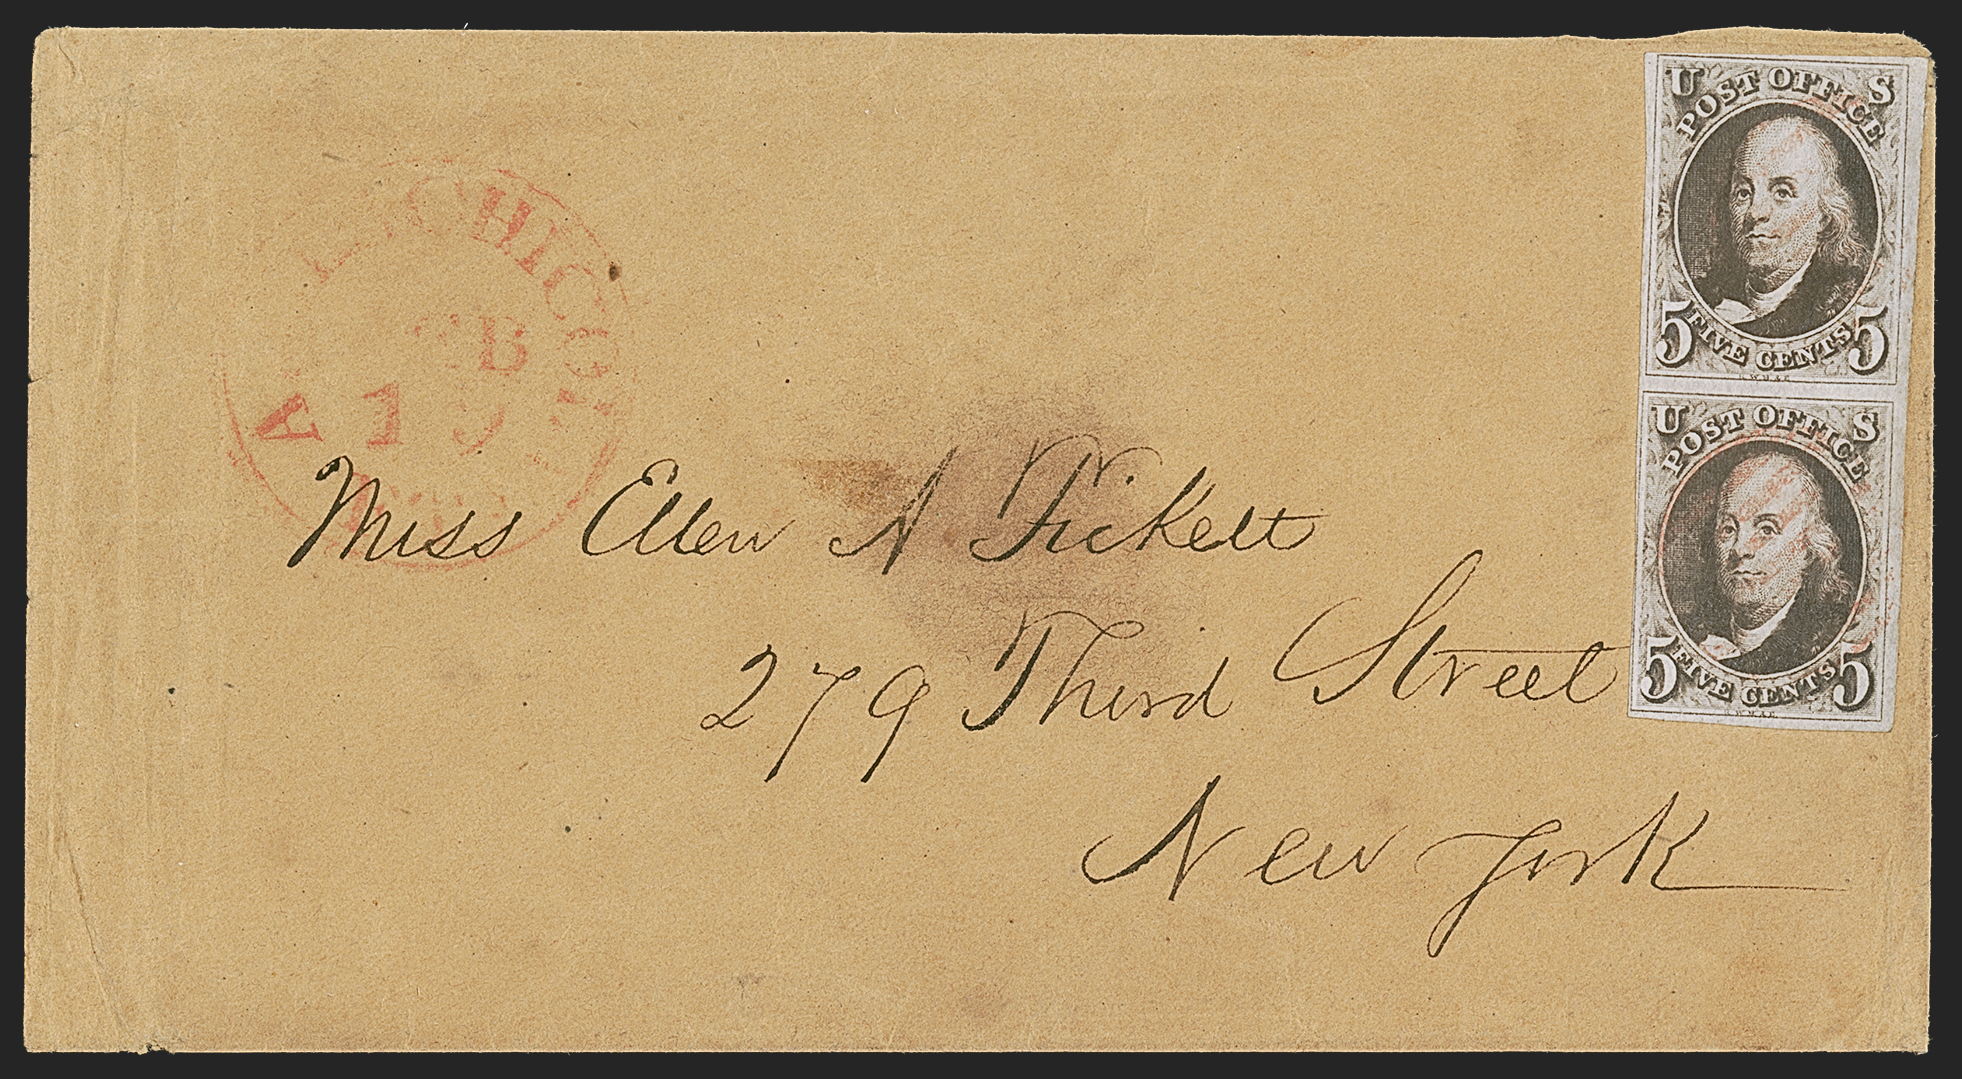 U S
POST OFFICE
5 FIVE CENTS 5
U S
POST OFFICE
5 FIVE CENTS 5
CHICO
1
Miss Ellen A Fickett
279 Third Street
New York